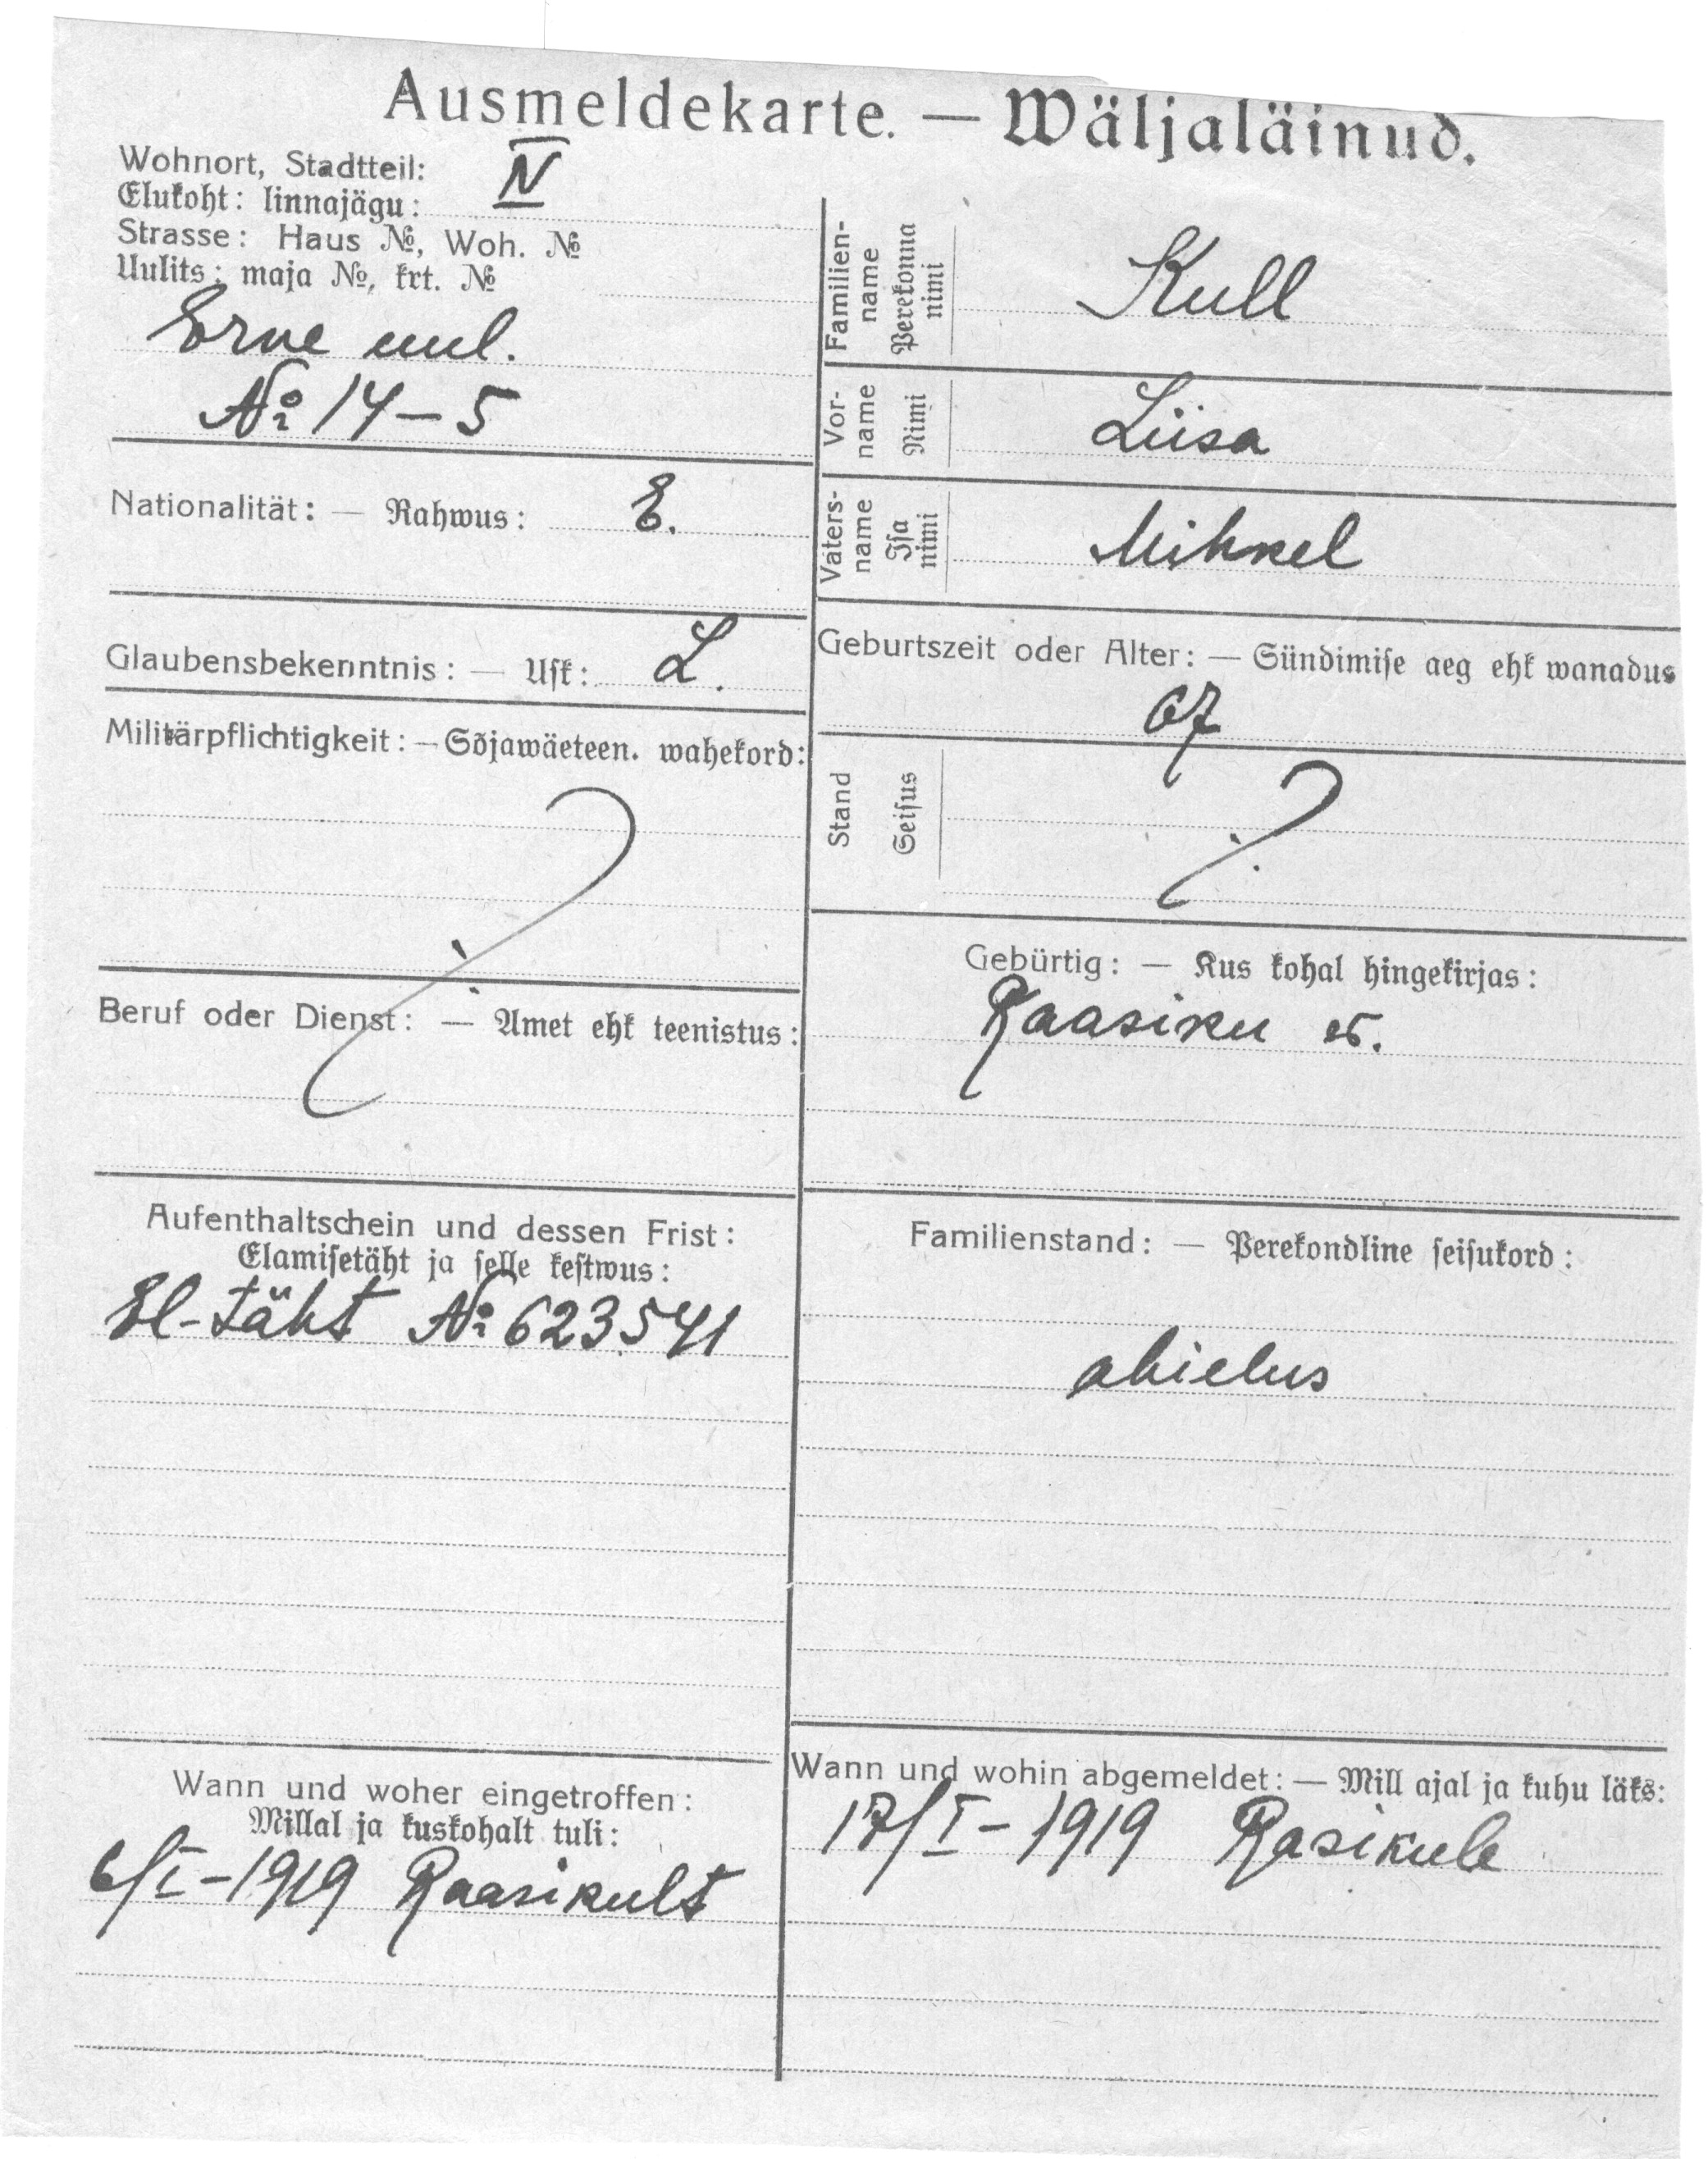 Ausmeldekarte. — Wäljaläinud.
Wohnort, Stadtteil:
Elukoht: linnajägu: IV
Strasse: Haus №, Woh. №
Uulits: maja №, krt. №
Erne uul.
№ 14-5
Nationalität: — Rahwus: E.
Glaubensbekenntnis: — Usk: L.
Militärpflichtigkeit: — Sõjawäeteen. wahekord:
Beruf oder Dienst: — Amet ehk teenistus:
Aufenthaltschein und dessen Frist:
Elamisetäht ja selle kestwus:
El-täht № 623541
Wann und woher eingetroffen:
Millal ja kuskohalt tuli:
6/I-1919 Raasikult
Familien-
name
Perekonna
nimi
Kull
Vor-
name
Nimi
Liisa
Vaters-
name
Isa
nimi
Mihkel
Geburtszeit oder Alter: — Sündimise aeg ehk wanadus
67
Stand
Seisus
?
Gebürtig: — Kus kohal hingekirjas:
Raasiku
Familienstand: — Perekondline seisukord:
abielus
Wann und wohin abgemeldet: — Mill ajal ja kuhu läks:
17/I-1919 Rasikule